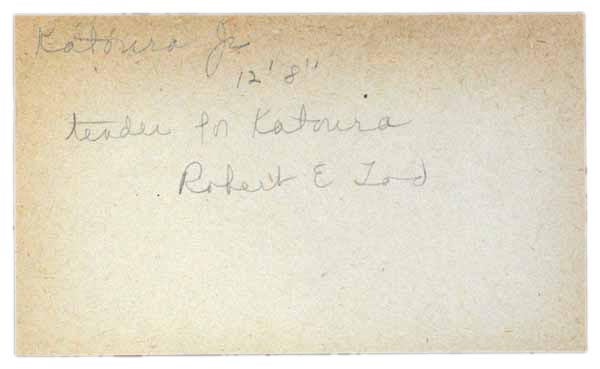 Katoura Jr
12' 8"
tender for Katoura
Robert E Tod